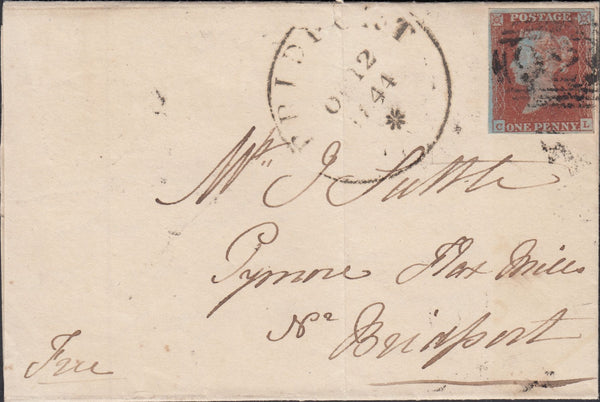 POSTAGE
C ONE PENNY L
BRIDPORT
OC 12
1844
Mr J Suttle
Pymore Flax Mills
Nr
Bridport
Free